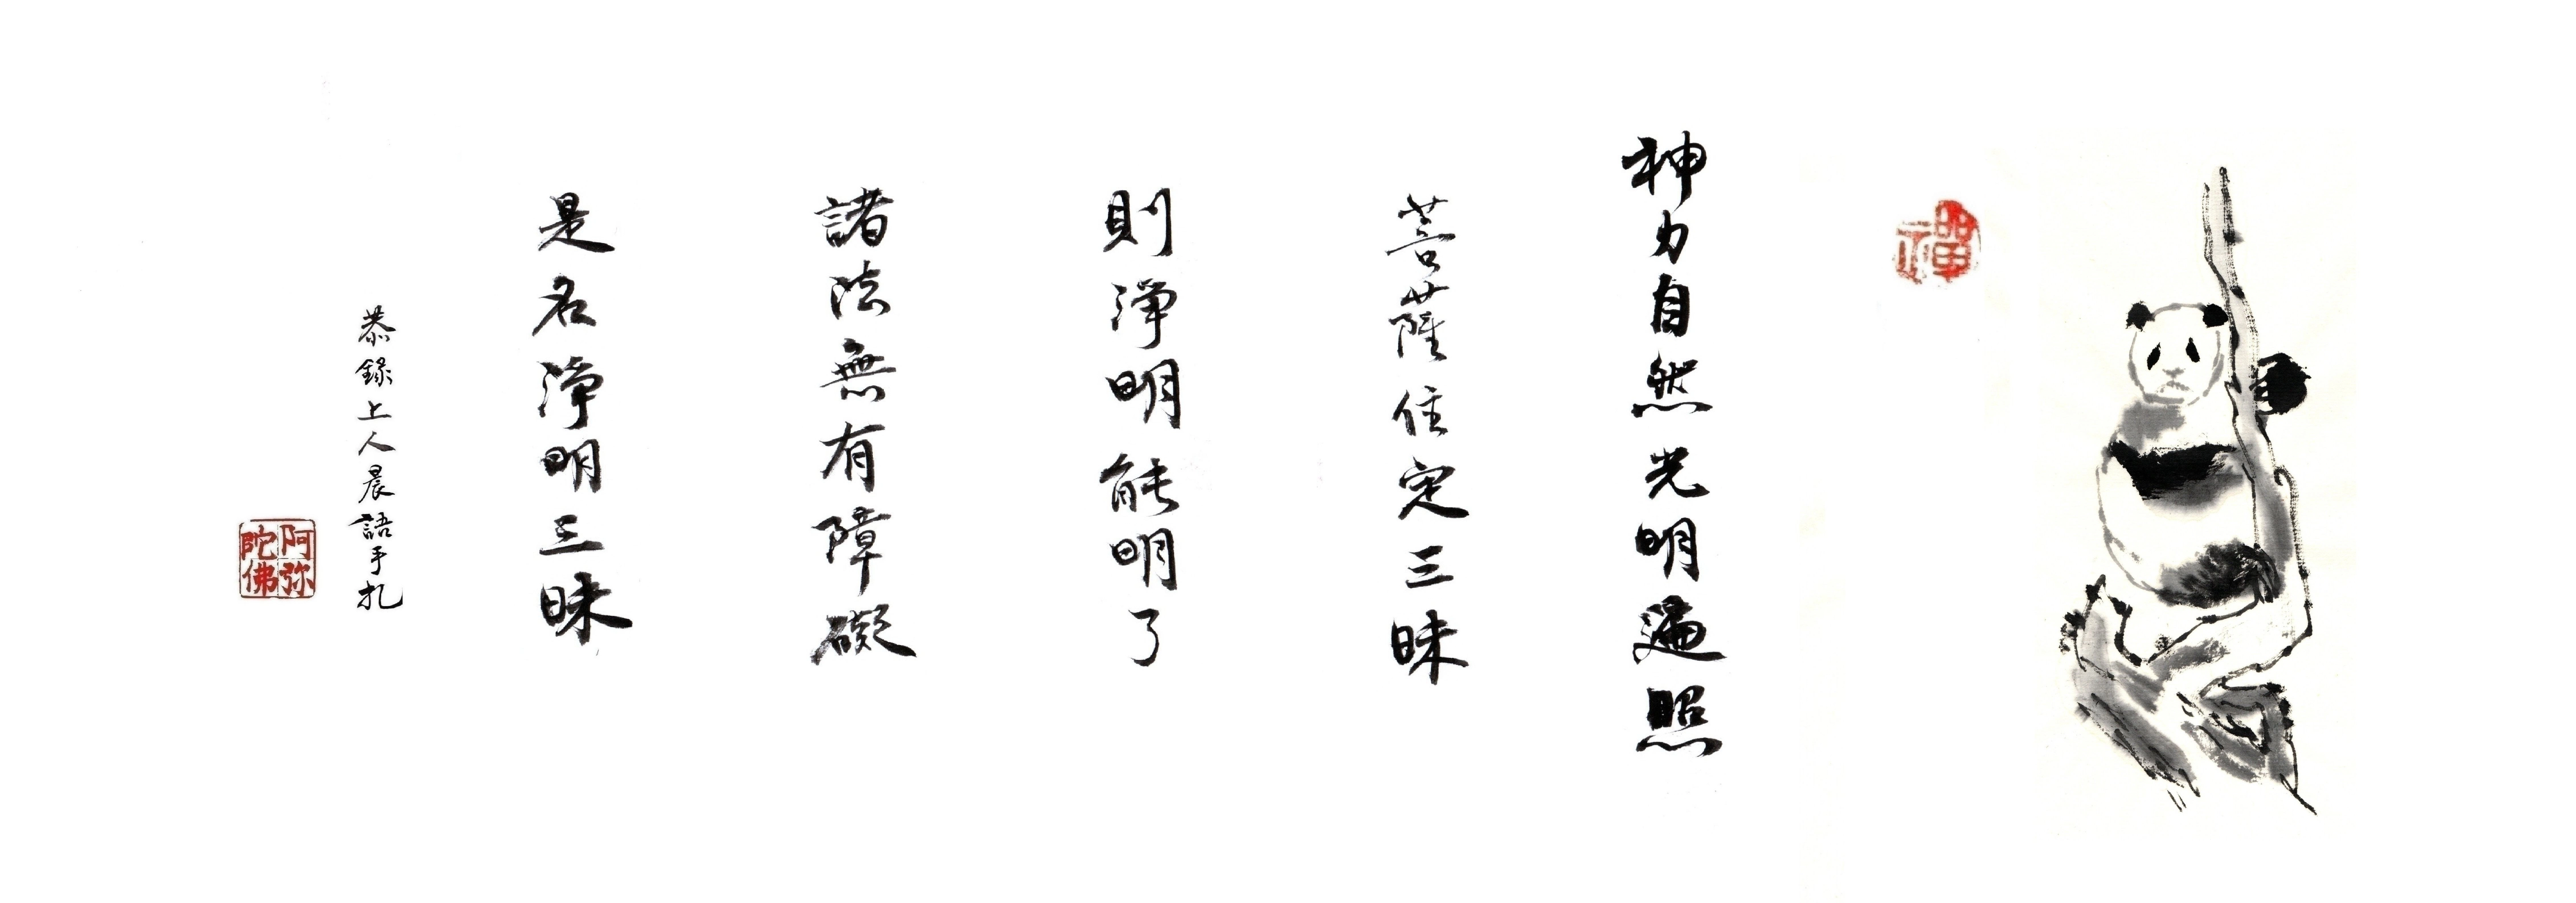 禪
神力自然光明遍照
菩薩住定三昧
則淨明能明了
諸法無有障礙
是名淨明三昧
恭錄上人晨語手札
阿弥陀佛